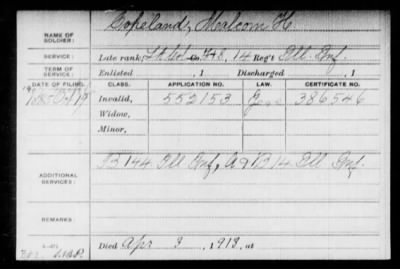 NAME OF SOLDIER: Copeland, Malcom H.
SERVICE: Late rank, Co. 14 Reg't Ill Inf.
TERM OF SERVICE: Enlisted , 1 Discharged , 1
DATE OF FILING. CLASS. APPLICATION NO. LAW. CERTIFICATE NO.
Invalid, 552153 386546
Widow,
Minor,
ADDITIONAL SERVICES: B 144 Ill Inf, A & B 14 Ill Inf.
REMARKS:
Died Apr 3, 1913, at